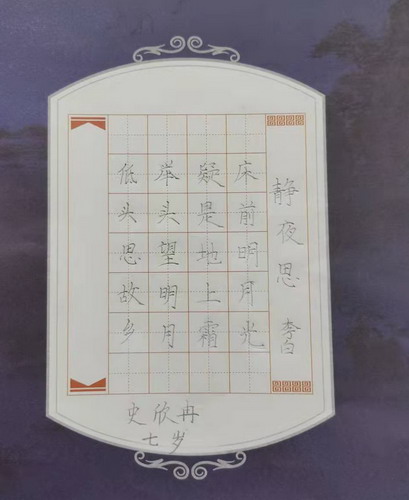 静夜思 李白
床前明月光
疑是地上霜
举头望明月
低头思故乡
史欣冉
七岁